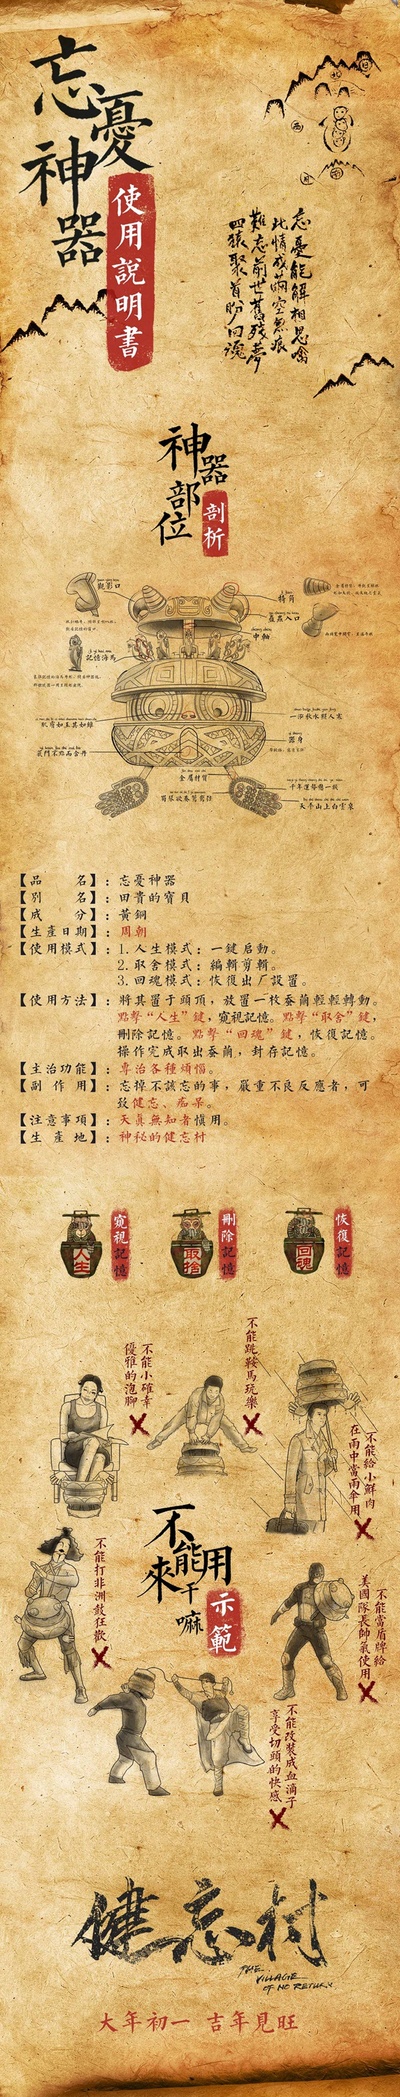 忘憂
神器
使用說明書
忘憂能解相思愁
此情成繭空無痕
難忘前世舊殘夢
四猿聚首盼回魂
神器
部位
剖析
觀影口
記憶海馬
犄角
蠶繭入口
中軸
一泓秋水照人寒
器身
金屬材質
千年蓮華應一瓣
天平山上白雲泉
【品名】：忘憂神器
【別名】：田貴的寶貝
【成分】：黃銅
【生產日期】：周朝
【使用模式】：1.人生模式：一鍵启動。
2.取舍模式：編輯剪輯。
3.回魂模式：恢復出厂設置。
【使用方法】：將其置于頭頂，放置一枚蚕繭輕輕轉動。
點擊“人生”鍵，窺視記憶。點擊“取舍”鍵，
刪除記憶。點擊“回魂”鍵，恢復記憶。
操作完成取出蚕繭，封存記憶。
【主治功能】：專治各種煩惱。
【副作用】：忘掉不該忘的事，嚴重不良反應者，可
致健忘、痴呆。
【注意事項】：天真無知者慎用。
【生產地】：神秘的健忘村
人生
窺視記憶
取捨
刪除記憶
回魂
恢復記憶
不能小確幸
優雅的泡腳
不能跳鞍馬玩樂
不能給小鮮肉
在雨中當雨傘用
不能用
來干嘛
示範
不能打非洲鼓狂歡
不能當盾牌給
美國隊長帥氣使用
不能改裝成血滴子
享受切頭的快感
健忘村
THE
VILLAGE
OF NO RETURN
大年初一 吉年見旺